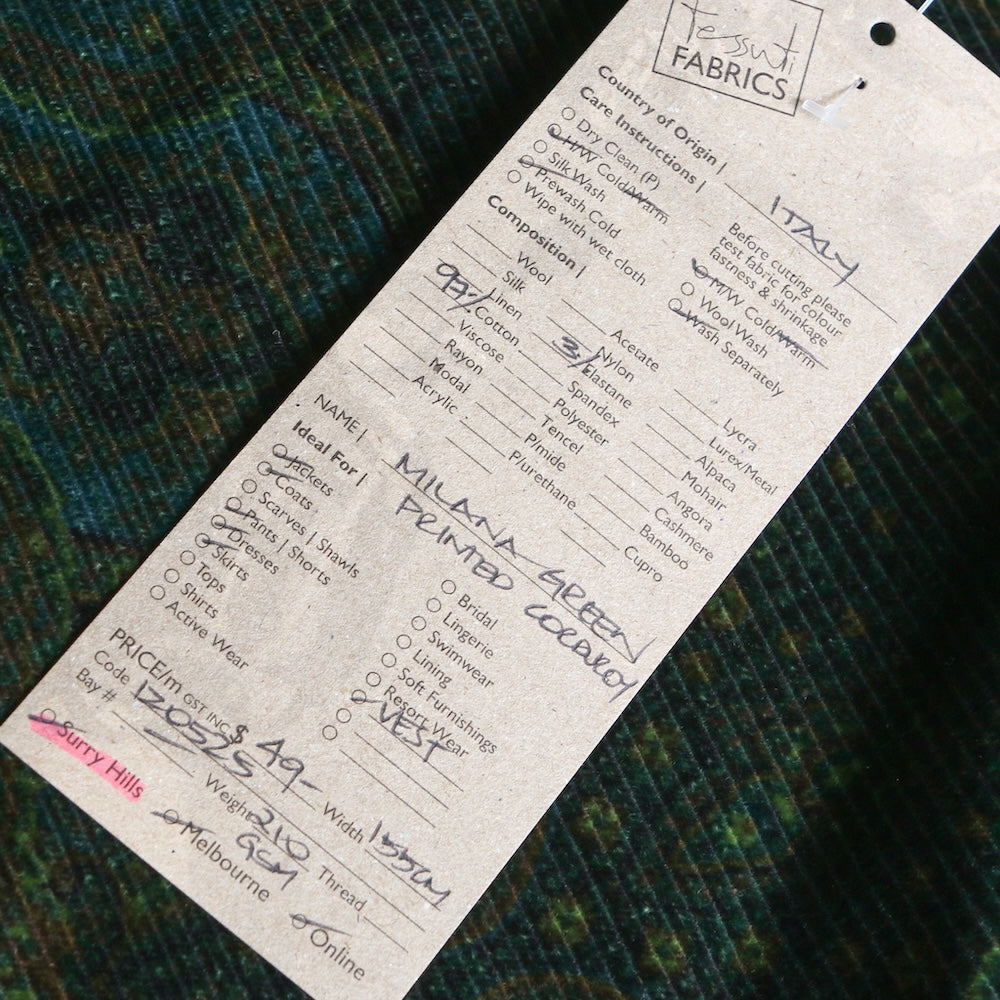 Tessuti
FABRICS
Country of Origin | ITALY
Care Instructions |
Dry Clean (P)
H/W Cold/Warm
Silk Wash
Prewash Cold
Wipe with wet cloth
Before cutting please
test fabric for colour
fastness & shrinkage
M/W Cold/Warm
Wool Wash
Wash Separately
Composition |
Wool
Silk
Linen
97% Cotton
Viscose
Rayon
Modal
Acrylic
Acetate
Nylon
3% Elastane
Spandex
Polyester
Tencel
P/mide
P/urethane
Lycra
Lurex/Metal
Alpaca
Mohair
Angora
Cashmere
Bamboo
Cupro
NAME | MILANA GREEN
PRINTED CORDUROY
Ideal For |
Jackets
Coats
Scarves | Shawls
Pants | Shorts
Dresses
Skirts
Tops
Shirts
Active Wear
Bridal
Lingerie
Swimwear
Lining
Soft Furnishings
Resort Wear
VEST
PRICE/m GST INC $ 49-
Width 155CM
Code 120525
Weight 210
GSM
Thread
Bay #
Surry Hills
Melbourne
Online